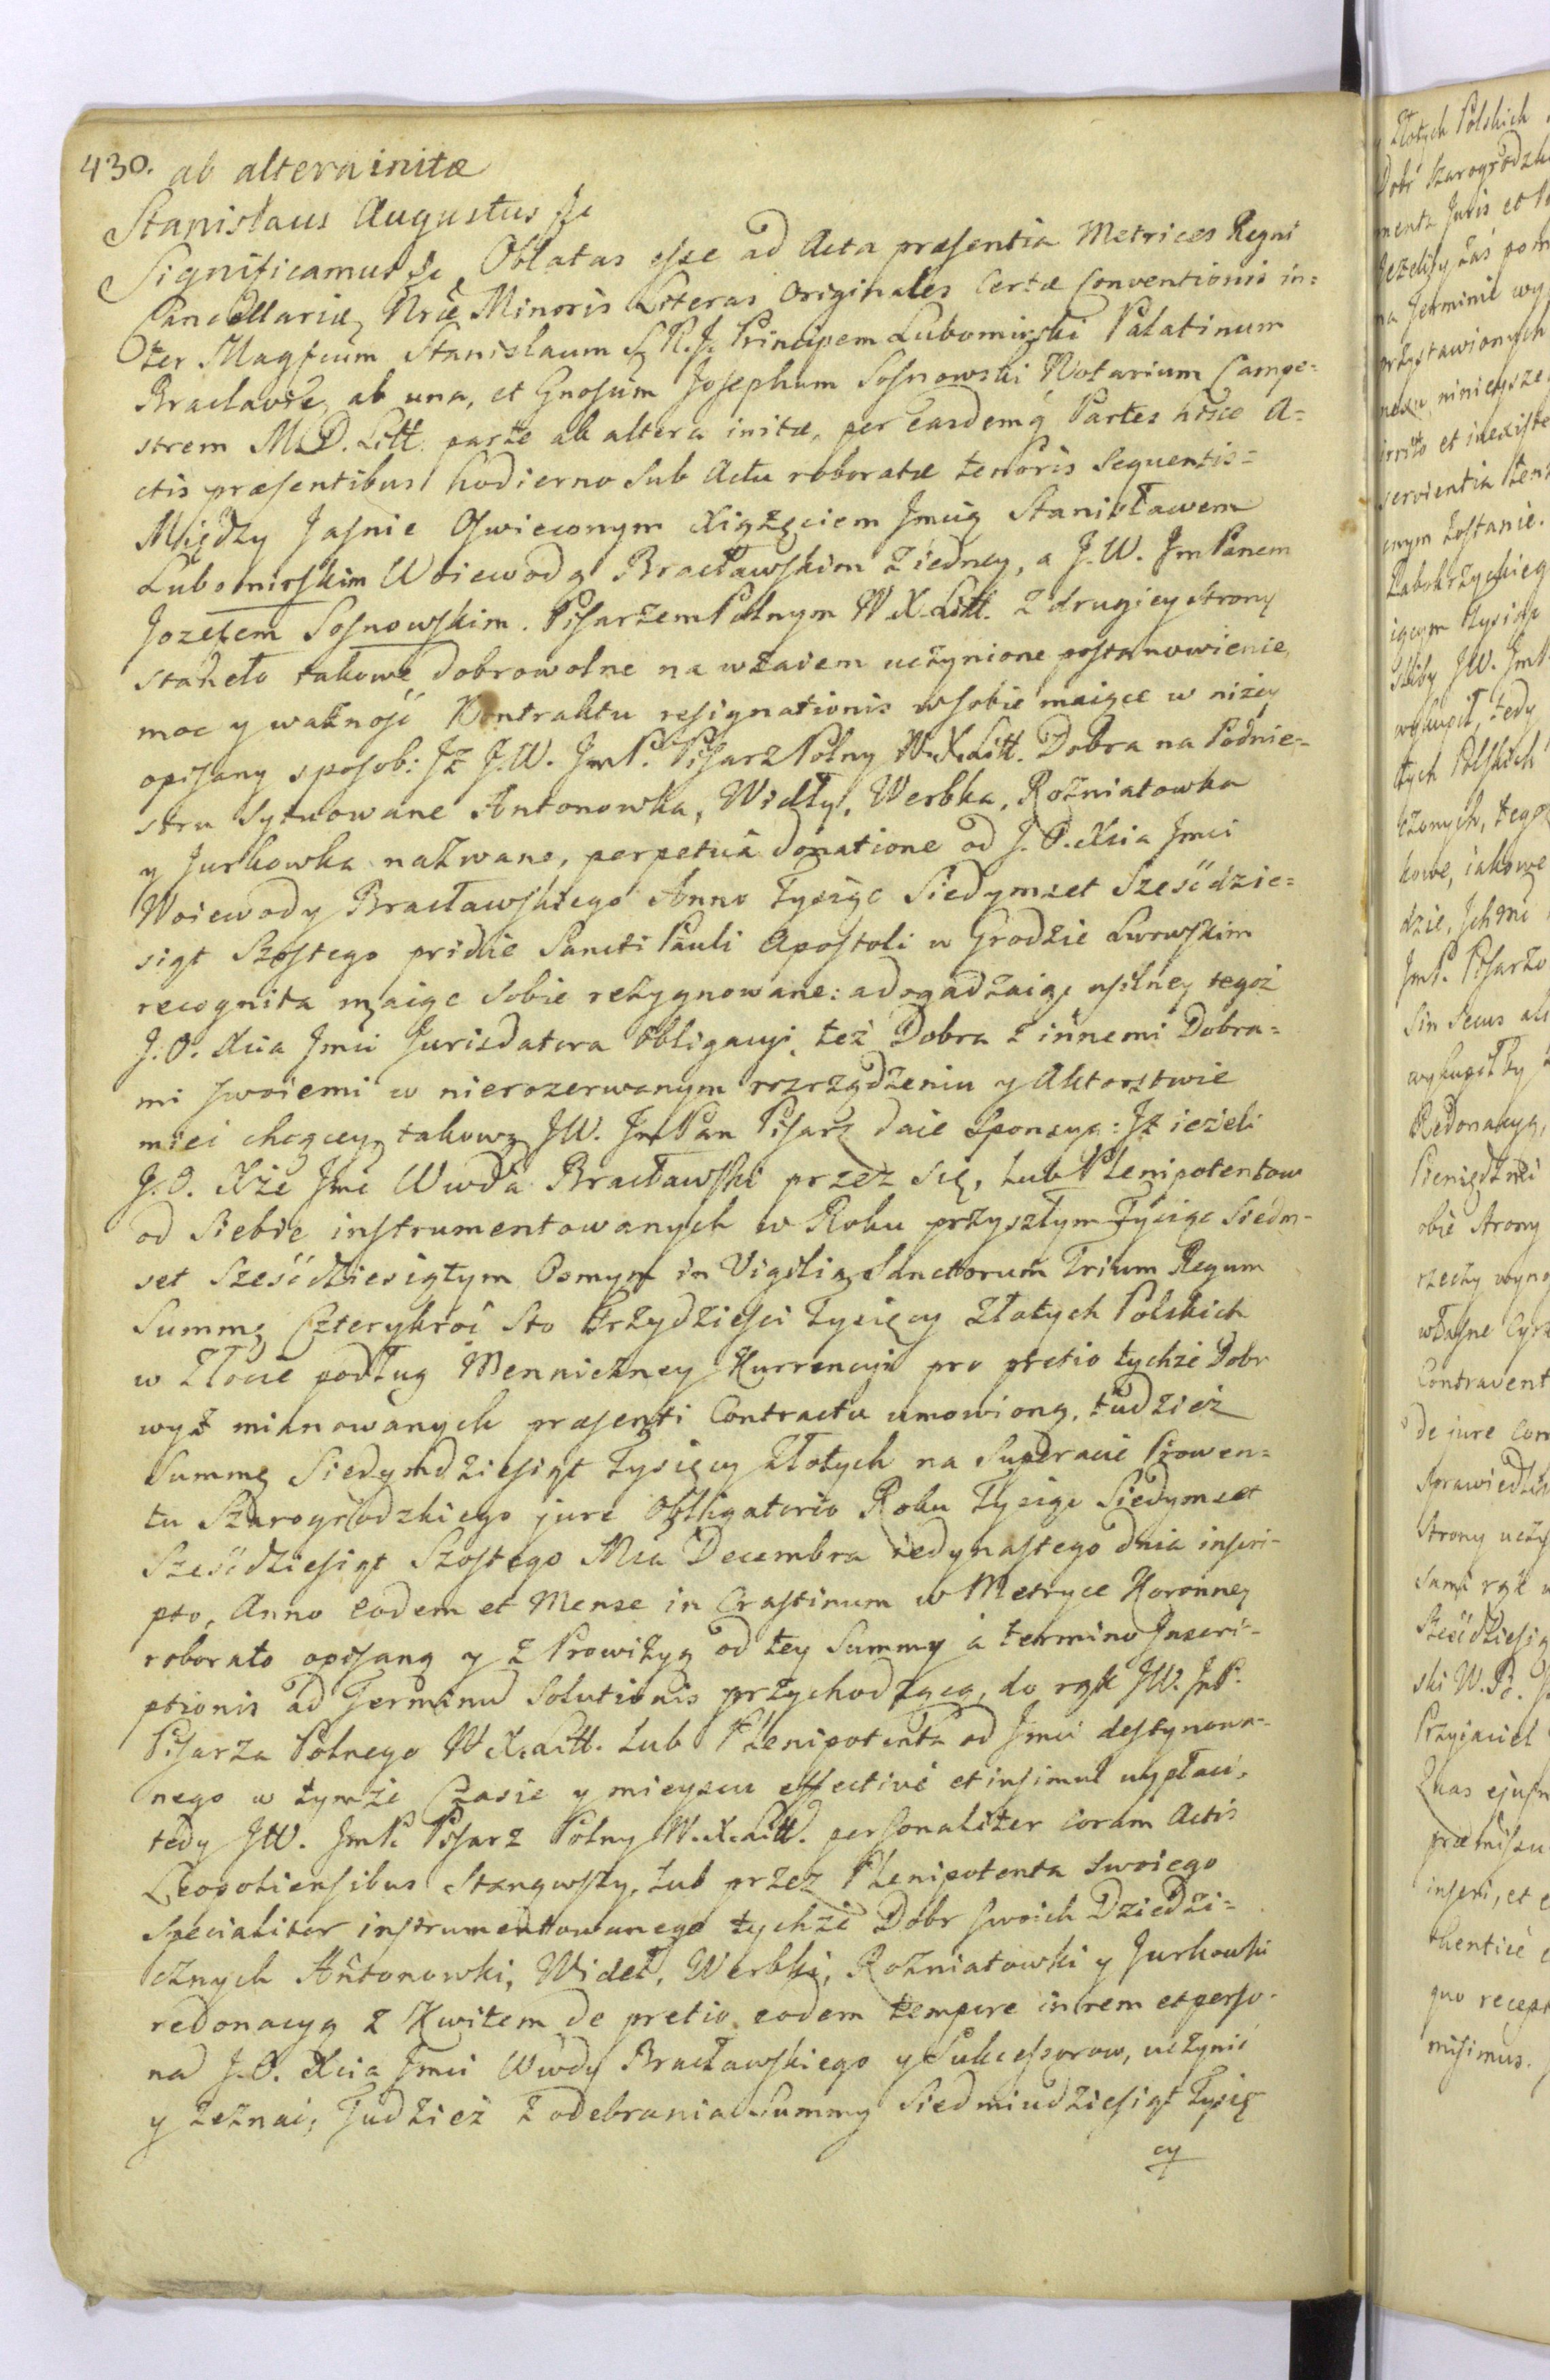 430. ab altera initæ
Stanislaus Augustus &c
Significamus &c Oblatas esse ad Acta præsentia Metrices Regni
Cancellariæ Nræ Minoris Literas Originales Certæ Conventionis in=
ter Magfcum Stanislaum S. R. J. Principem Lubomirski Palatinum
Braclaviæ, ab una, et Gnosum Josephum Sosnowski Notarium Campe=
strem M. D. Litt. parte ab altera initæ, per easdemq́ Partes hisce A=
ctis præsentibus hodierno sub Actu roboratæ tenoris sequentis=
Między Jasnie Oswieconym Xiążęciem Jmcią Stanisławem
Lubomirskim Woiewodą Bracławskim z iedney, a J. W. Jm Panem
Jozefem Sosnowskim. Pisarzem Polnym W. X. Litt. z drugiey strony
staneło takowe dobrowolne na wzaiem uczynione postanowienie
moc y ważność Kontraktu resignationis w sobie maiące w niżey
opisany sposob: Jż J. W. Jm P. Pisarz Polny W. X. Litt. Dobra na Podnie=
stru sytuowane Antonowka, Widły, Werbka, Rożniatowka
y Jurkowka nazwane, perpetuâ donatione od J. O. Xcia Jmci
Woiewody Bracławskiego Anno Tysiąc Siedymset Sześćdzie=
siąt Szostego pridie Sancti Pauli Apostoli w Grodzie Lwowskim
recognita maiąc sobie rezygnowane: a dogadzaiąc usilney tegoż
J. O. Xcia Jmci Jurisdatora obligacyi, też Dobra z innemi Dobra=
mi swoiemi w nierozerwanym rozrządzeniu y Aktorstwie
mieć chcącey, takową JW. Jm Pan Pisarz daie sponsyą: Jż ieżeli
J. O. Xże Jmć Wwda Bracławski przez się, lub Plenipotentow
od siebie instrumentowanych w Roku przyszłym Tysiąc Siedm-
set Sześćdziesiątym Osmym in Vigilia Sanctorum Trium Regum
Summę Czterykroć Sto Trzydzieści Tysięcy Złotych Polskich
w Złocie podług Menniczney Kurrencyi pro pretio tychże Dobr
wyż mianowanych præsenti Contractu umowioną, tudzież
Summę Siedymdziesiąt Tysięcy Złotych na Supracie Prowen=
tu Szarogrodzkiego jure obligatorio Roku Tysiąc Siedymset
Sześćdziesiąt Szostego Mca Decembra iedynastego dnia inscri-
pto, Anno eodem et Mense in Crastinum w Metryce Koronney
roborato opisaną y z Prowizyą od tey Summy à termino Inscri-
ptionis ad Terminũ Solutionis przychodzącą, do rąk JW. Jm P.
Pisarza Polnego W. X. Litt. lub Plenipotenta od Jmci destynowa=
nego w tymże Czasie y mieyscu effectivè et insimul wypłaci,
tedy JW. Jm P. Pisarz Polny W. X. Litt. personaliter coram Actis
Leopoliensibus stanąwszy, lub przez Plenipotenta swoiego
specialiter instrumentowanego tychże Dobr swoich Dziedzi=
cznych Antonowki, Wideł, Werbki, Rożniatowki y Jurkowki
redonacyą z Kwitem de pretio eodem tempore in rem et perso-
nã J. O. Xcia Jmci Wwdy Bracławskiego y Sukcessorow, uczynić
y zeznać, Tudzież z odebrania Summy Siedmiudziesiąt Tysię
cy